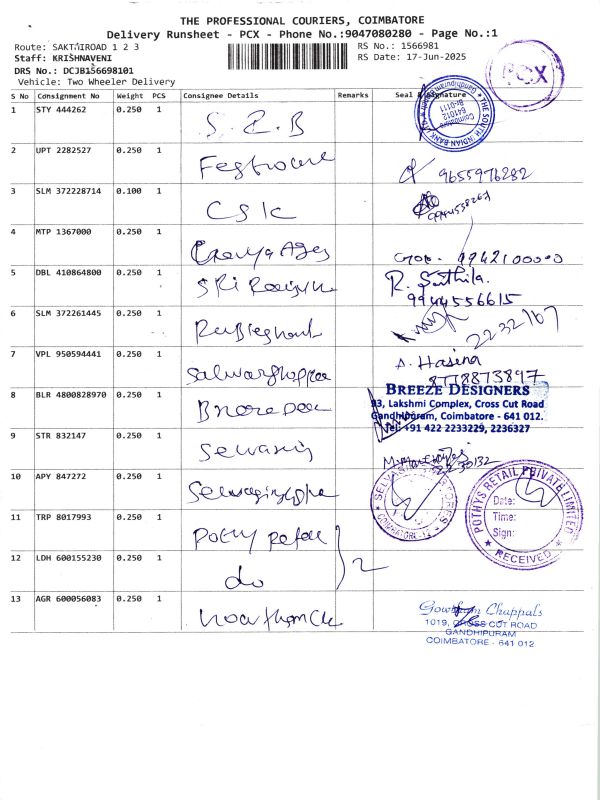 THE PROFESSIONAL COURIERS, COIMBATORE
Delivery Runsheet - PCX - Phone No.:9047080280 - Page No.:1
Route: SAKTHIROAD 1 2 3
RS No.: 1566981
Staff: KRISHNAVENI
RS Date: 17-Jun-2025
DRS No.: DCJB156698101
Vehicle: Two Wheeler Delivery
PCX
S No Consignment No Weight PCS Consignee Details Remarks Seal & Signature
1 STY 444262 0.250 1 S. I. B
THE SOUTH INDIAN BANK Gandhipuram Coimbatore 641012 Br-0111
2 UPT 2282527 0.250 1 9655976282
3 SLM 372228714 0.100 1 CSK
4 MTP 1367000 0.250 1
5 DBL 410864800 0.250 1 SRi R. Senthila.
9944556615
6 SLM 372261445 0.250 1 2232167
7 VPL 950594441 0.250 1 Salwarshoppee A. Hasina
8778873897
8 BLR 4800828970 0.250 1
BREEZE DESIGNERS
93, Lakshmi Complex, Cross Cut Road
Gandhipuram, Coimbatore - 641 012.
Tel: +91 422 2233229, 2236327
9 STR 832147 0.250 1 Selvanis
10 APY 847272 0.250 1
COIMBATORE-12
POTHYS RETAIL PRIVATE LIMITED
Date:
Time:
Sign:
RECEIVED
11 TRP 8017993 0.250 1 Pothy Retail
12 LDH 600155230 0.250 1 do 2
13 AGR 600056083 0.250 1
Gowtham Chappals
1019, CROSS CUT ROAD
GANDHIPURAM
COIMBATORE - 641 012